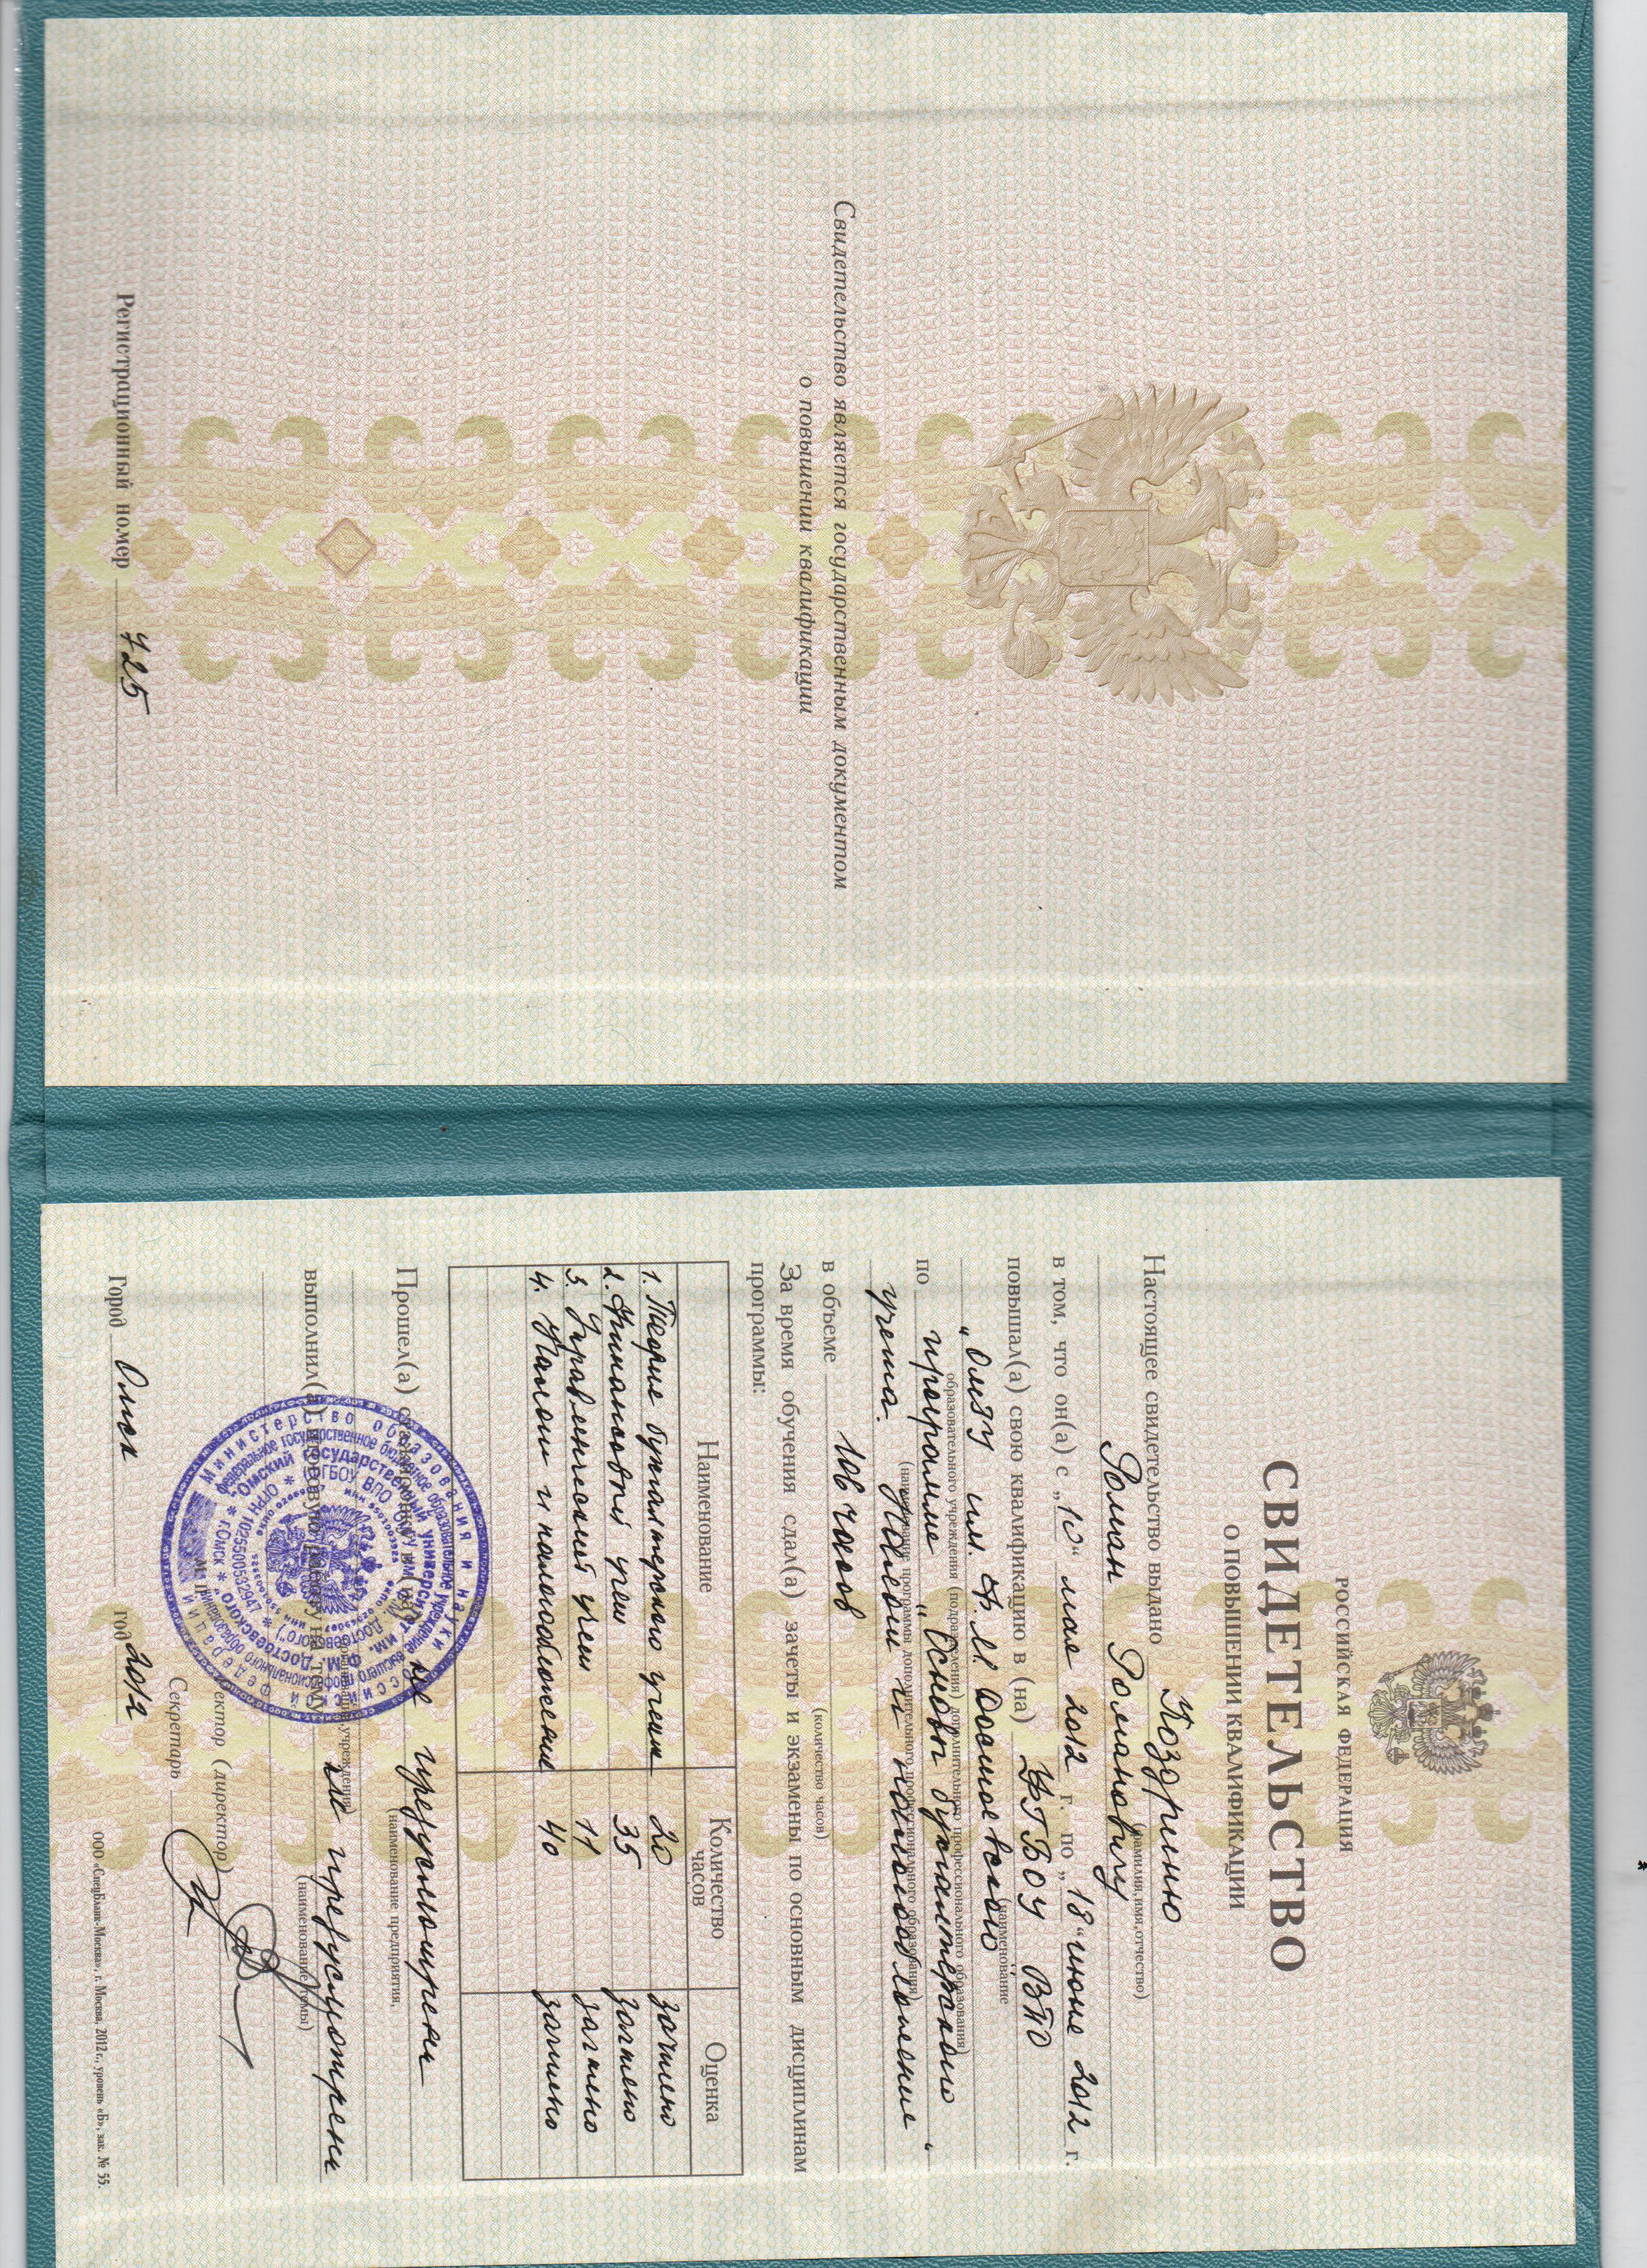 Свидетельство является государственным документом
о повышении квалификации
Регистрационный номер 725
РОССИЙСКАЯ ФЕДЕРАЦИЯ
СВИДЕТЕЛЬСТВО
О ПОВЫШЕНИИ КВАЛИФИКАЦИИ
Настоящее свидетельство выдано Поздриню
(фамилия,имя,отчество)
Роман Романовичу
в том, что он(а) с „10“ мая 2012 г. по „18“ июня 2012 г.
повышал(а) свою квалификацию в (на) ФГБОУ ВПО
(наименование
„ОмГУ им. Ф.М. Достоевского"
образовательного учреждения (подразделения) дополнительного профессионального образования)
по программе „Основы бухгалтерского
(наименование программы дополнительного профессионального образования)
учета. Налоги и налогообложение"
в объеме 106 часов
(количество часов)
За время обучения сдал(а) зачеты и экзамены по основным дисциплинам
программы:
Наименование Количество часов Оценка
1. Теория бухгалтерского учета 20 зачтено
2. Финансовый учет 35 зачтено
3. Управленческий учет 11 зачтено
4. Налоги и налогообложение 40 зачтено
Прошел(а) стажировку в (на) не предусмотрена
(наименование предприятия,
организации,учреждения)
выполнил(а) итоговую работу на тему не предусмотрена
(наименование темы)
Министерство образования и науки Российской Федерации
федеральное государственное бюджетное образовательное учреждение высшего профессионального образования
"Омский государственный университет им. Ф.М. Достоевского"
(ФГБОУ ВПО "ОмГУ им. Ф.М. Достоевского")
* ОГРН 1025500532947 *
* г.Омск *
М. П.
Ректор (директор)
Секретарь
Город Омск год 2012
ООО «СпецБланк-Москва», г. Москва, 2012 г., уровень «Б», зак. № 55.